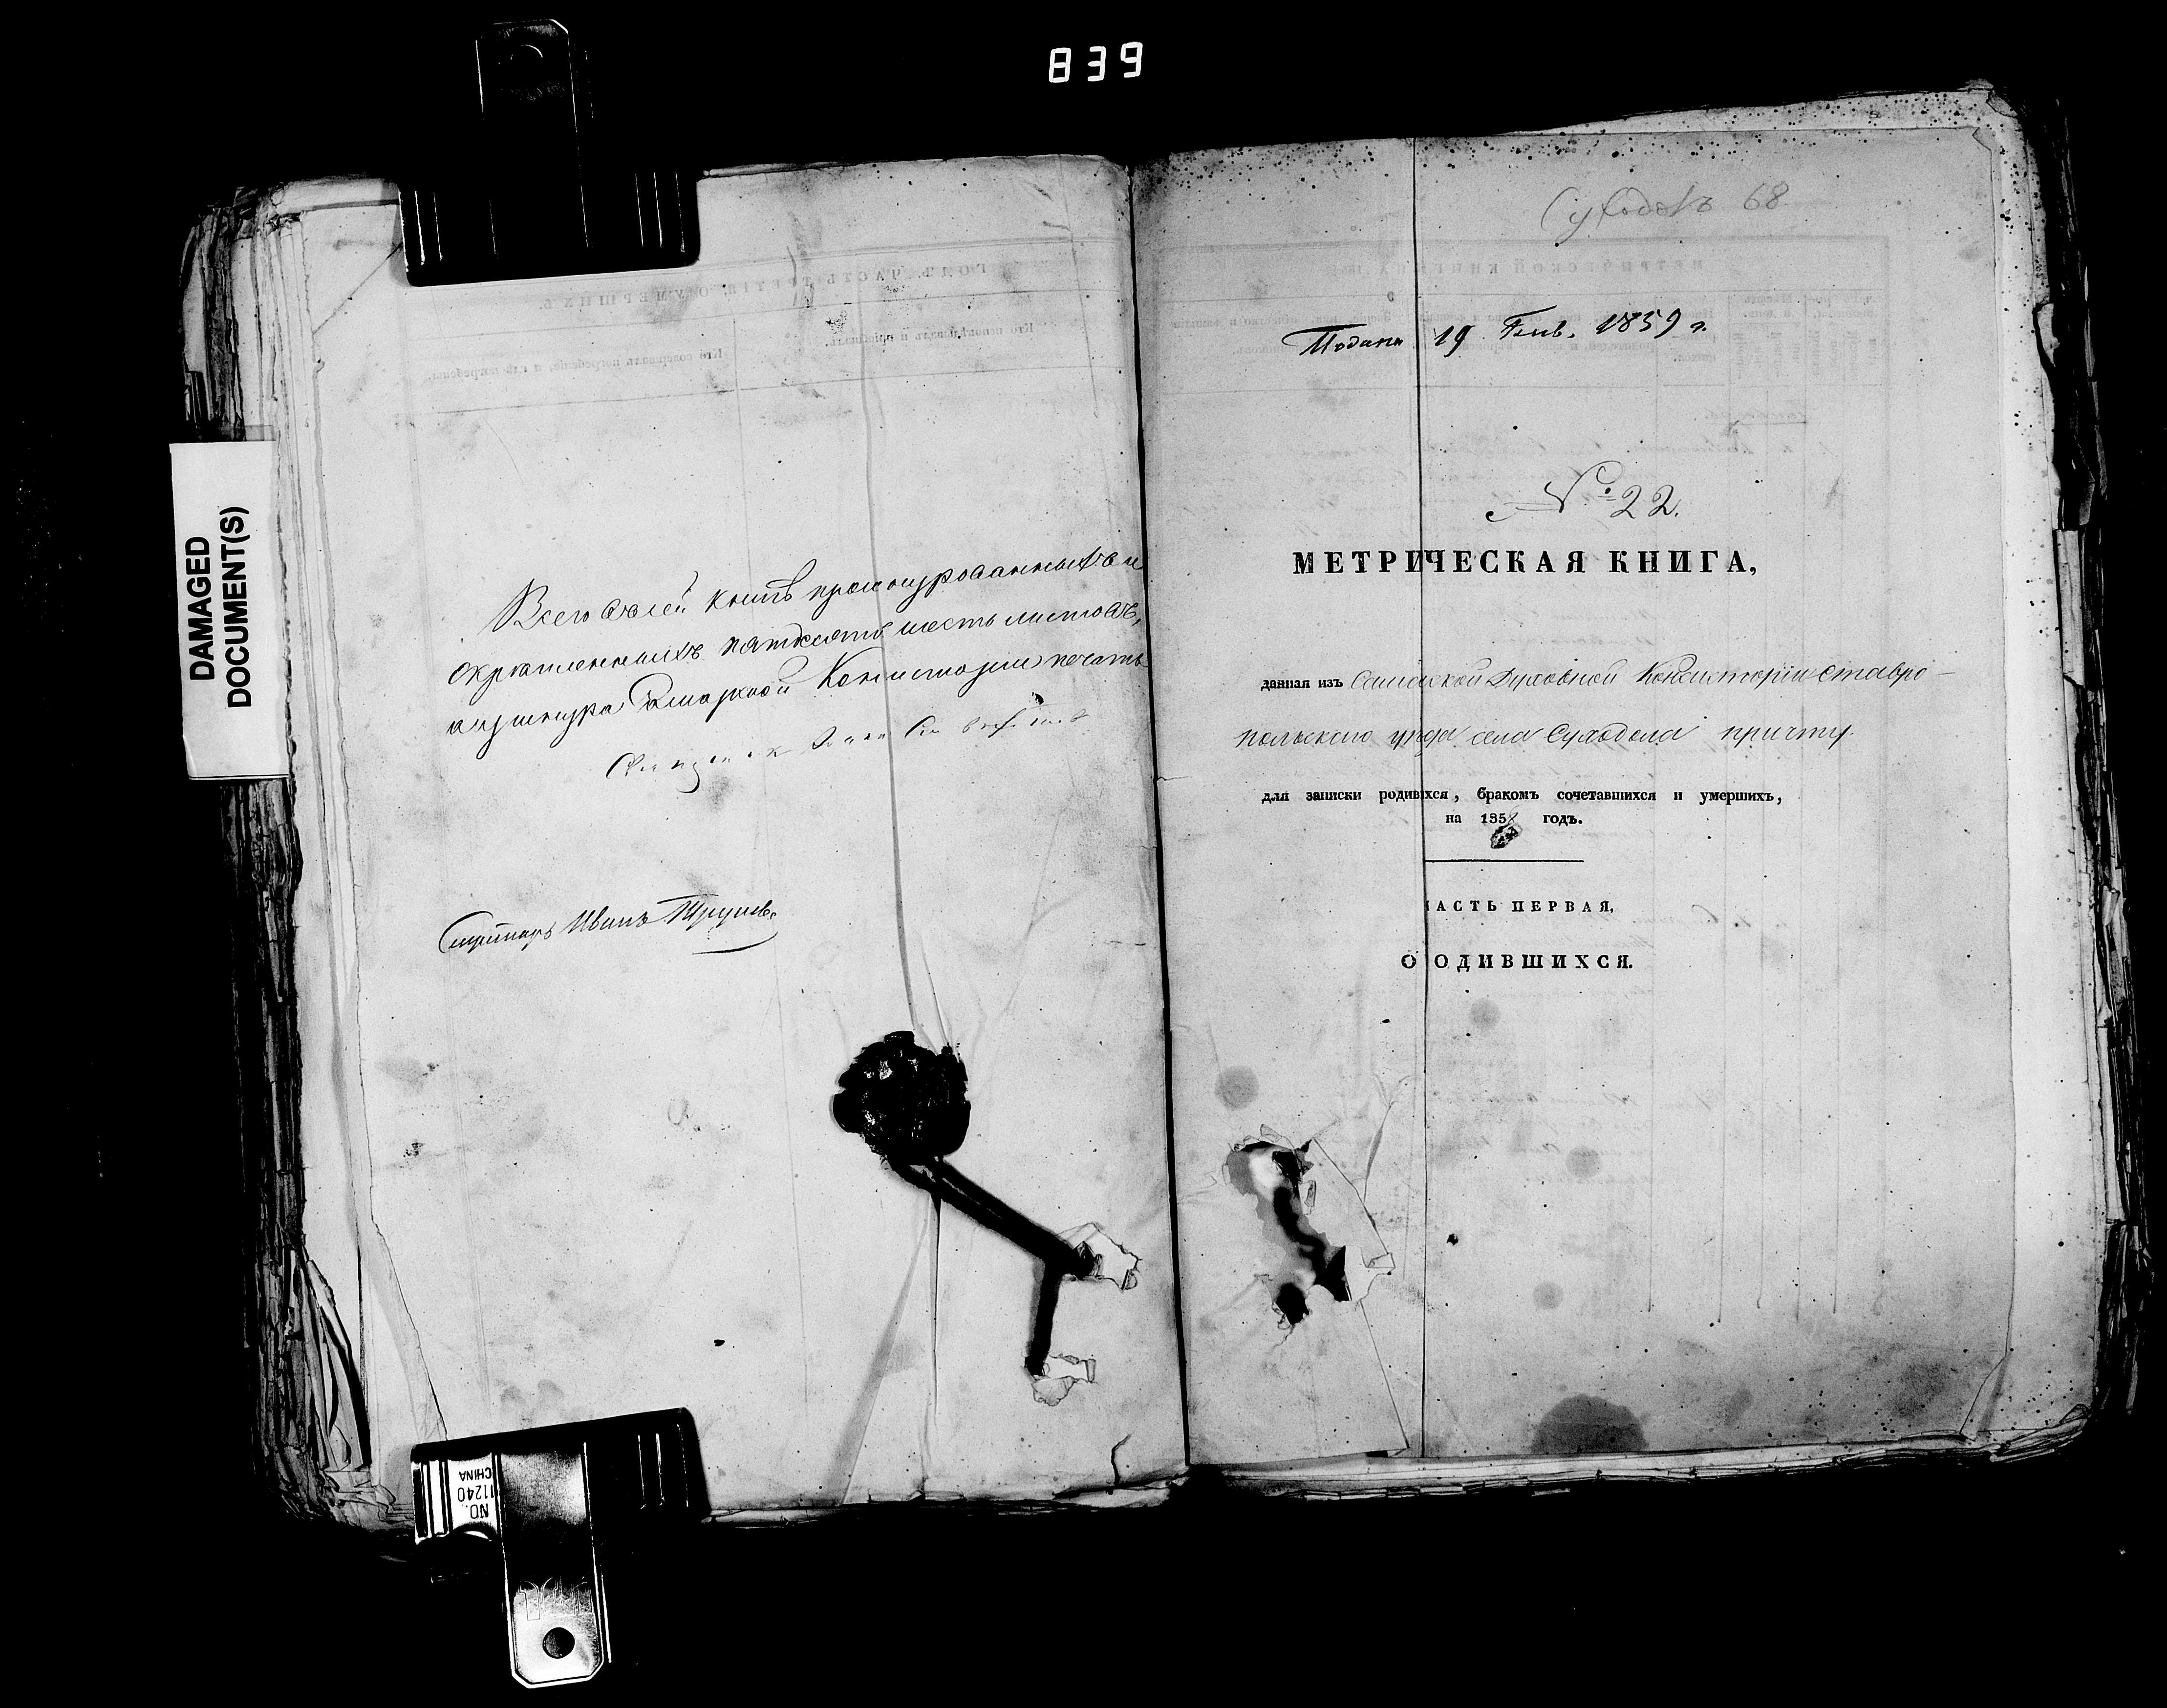 839
DAMAGED
DOCUMENT(S)
Всего въ сей книгѣ прошнурованныхъ и
скрѣпленныхъ пятдесятъ шесть листовъ,
а у шнура Самарской Консисторіи печать
Секретарь Иванъ
NO.
11240
CHINA
Суходолъ 68
Подана 19 Генв. 1859 г.
№ 22.
МЕТРИЧЕСКАЯ КНИГА,
данная изъ Самарской Духовной Консисторіи Ставро-
польскаго уѣзда села Суходола причту.
для записки родивіхся, бракомъ сочетавшихся и умершихъ,
на 1858 годъ.
АСТЬ ПЕРВАЯ,
О ОДИВШИХСЯ.